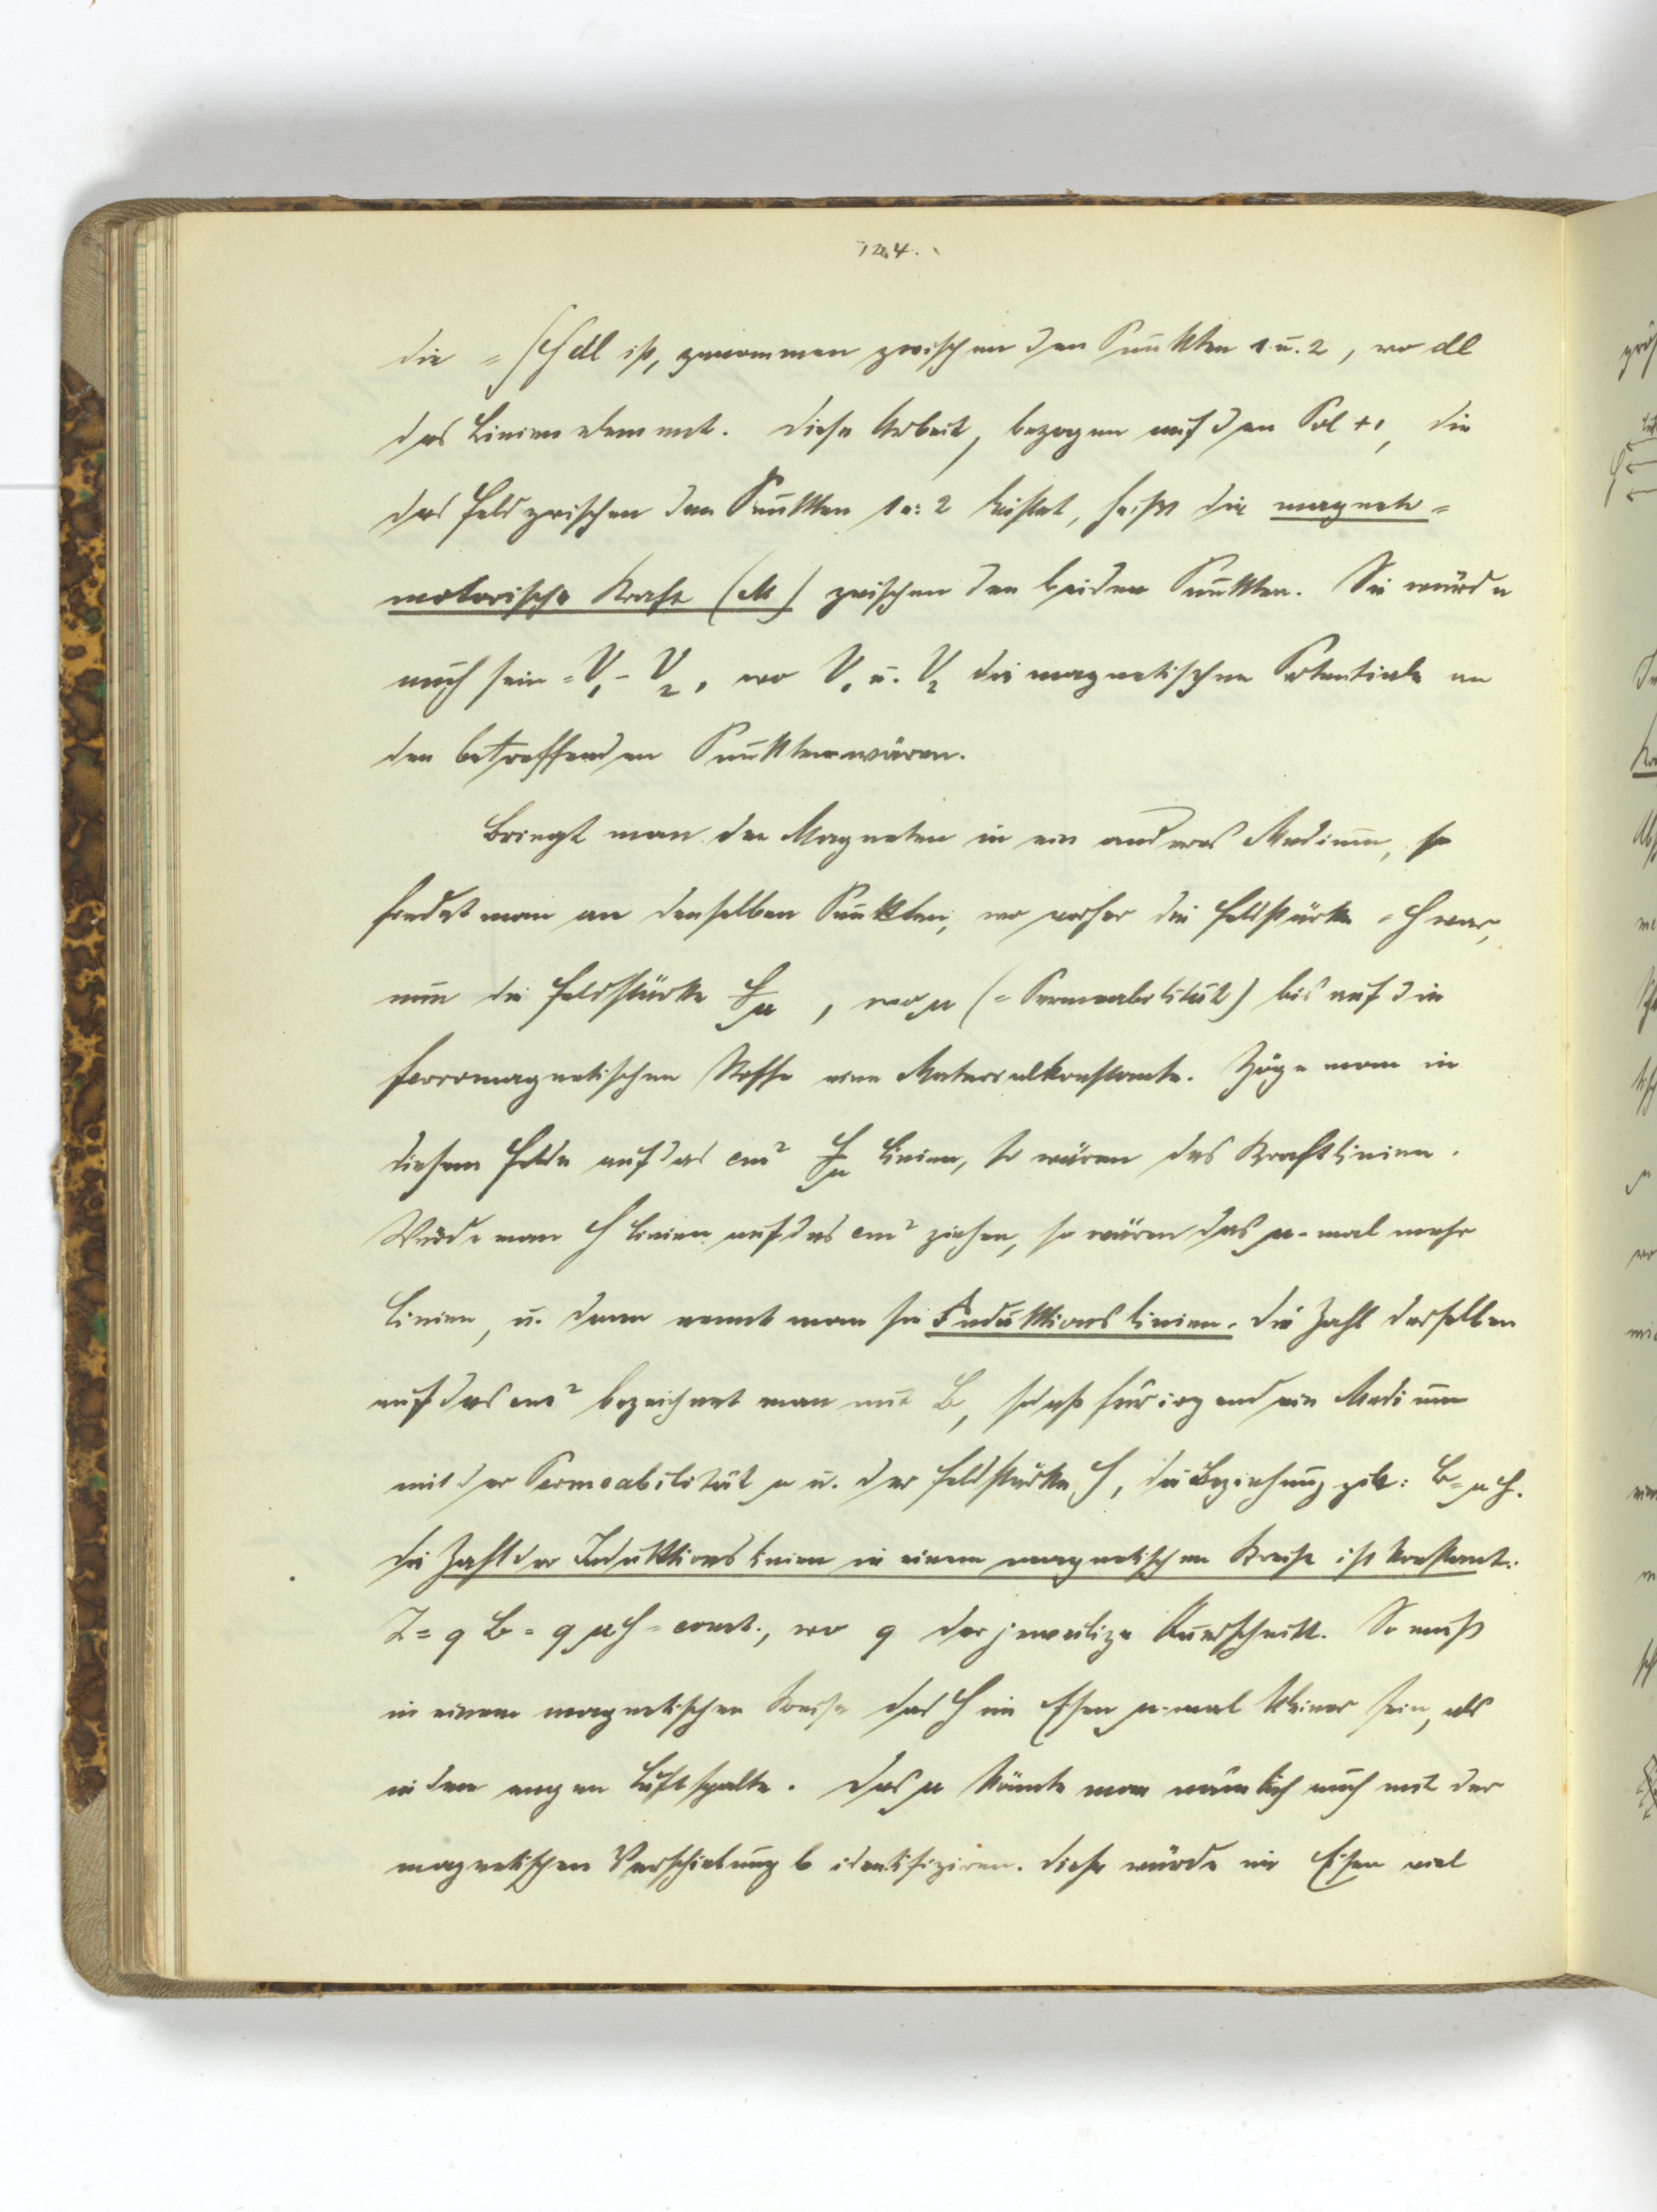 124.
die = ∫ H dl ist, genommen zwischen den Punkten 1 u. 2, wo dl
das Linienelement. Diese Arbeit, bezogen auf den Pol +1, die
das Feld zwischen den Punkten 1 u. 2 leistet, heisst die magneto-
motorische Kraft (M) zwischen den beiden Punkten. Sie würde
auch sein = V₁ - V₂, wo V₁ u. V₂ die magnetischen Potentiale an
den betreffenden Punkten wären.
Bringt man den Magneten in ein anderes Medium, so
findet man an denselben Punkten, wo vorher die Feldstärke = H war,
nun die Feldstärke H/μ, wo μ (= Permeabilität) bis auf die
ferromagnetischen Stoffe eine Materialkonstante. Zöge man in
diesem Felde auf das cm² H/μ Linien, so wären das Kraftlinien.
Würde man H Linien auf das cm² ziehen, so wären das μ-mal mehr
Linien, u. dann nennt man sie Induktionslinien. Die Zahl derselben
auf das cm² bezeichnet man mit B, sodass für irgend ein Medium
mit der Permeabilität μ u. der Feldstärke H, die Beziehung gilt: B = μ H.
Die Zahl der Induktionslinien in einem magnetischen Kreise ist konstant:
Z = q B = q μ H = const., wo q der jeweilige Querschnitt. So muss
in einem magnetischen Kreise das H im Eisen μ-mal kleiner sein, als
in dem engen Luftspalte. Das μ könnte man nämlich auch mit der
magnetischen Verschiebung b identifiziren. Diese würde im Eisen viel